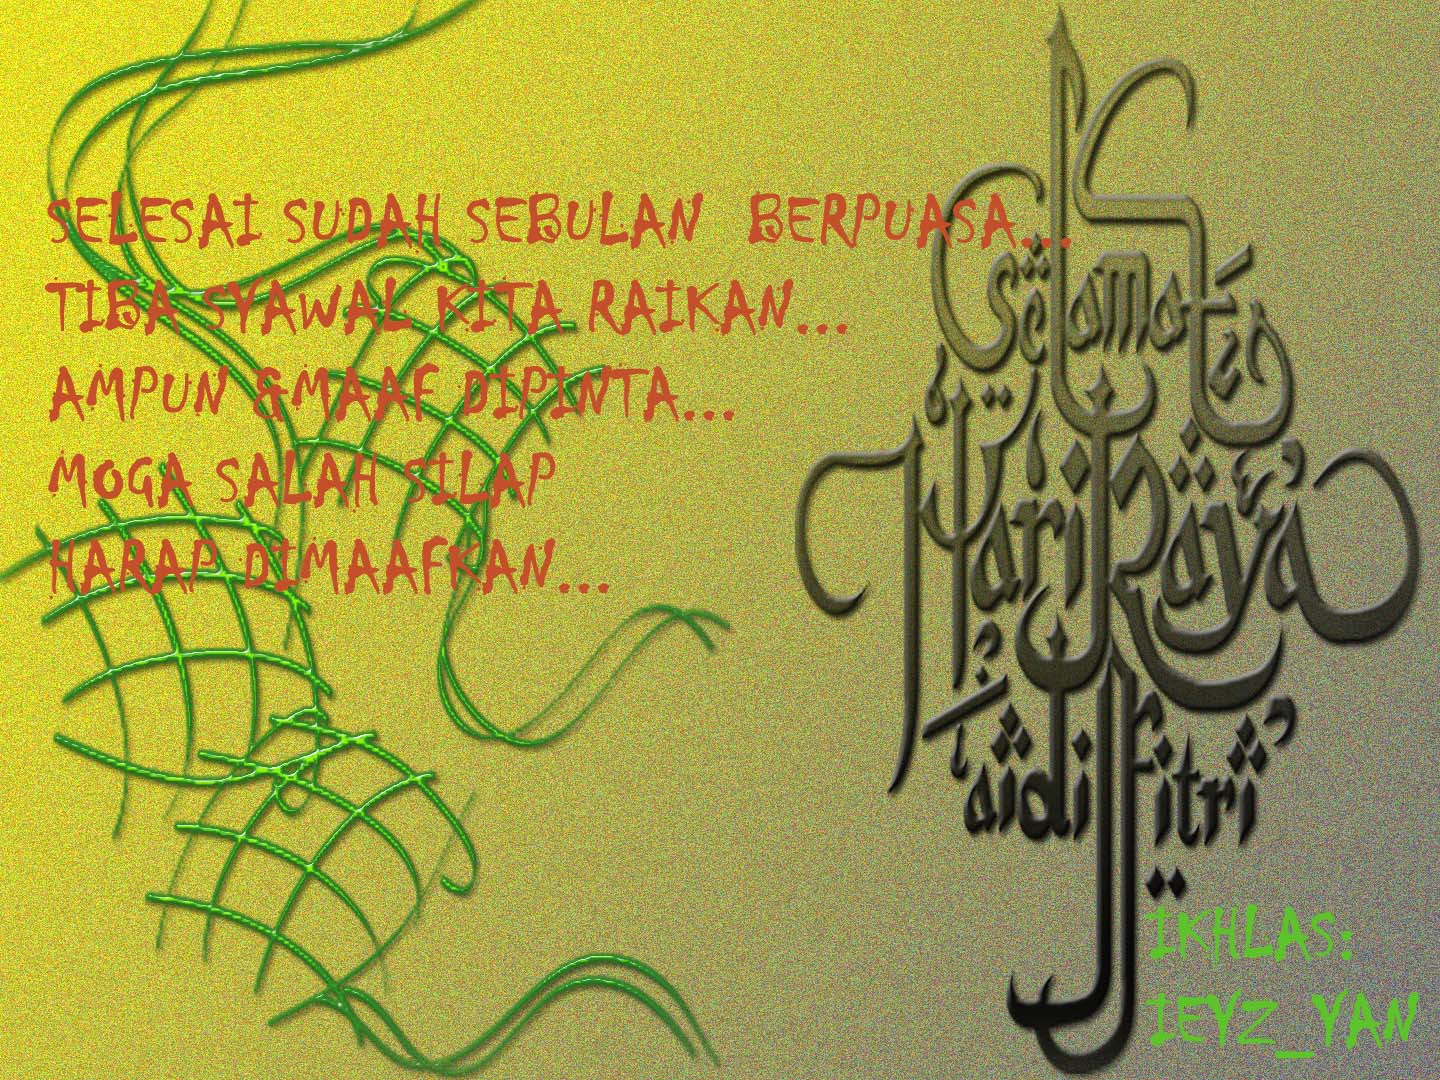 SELESAI SUDAH SEBULAN BERPUASA...
TIBA SYAWAL KITA RAIKAN...
AMPUN &MAAF DIPINTA...
MOGA SALAH SILAP
HARAP DIMAAFKAN...
Selamat
Hari Raya
aidilfitri
IKHLAS:
IEYZ_YAN